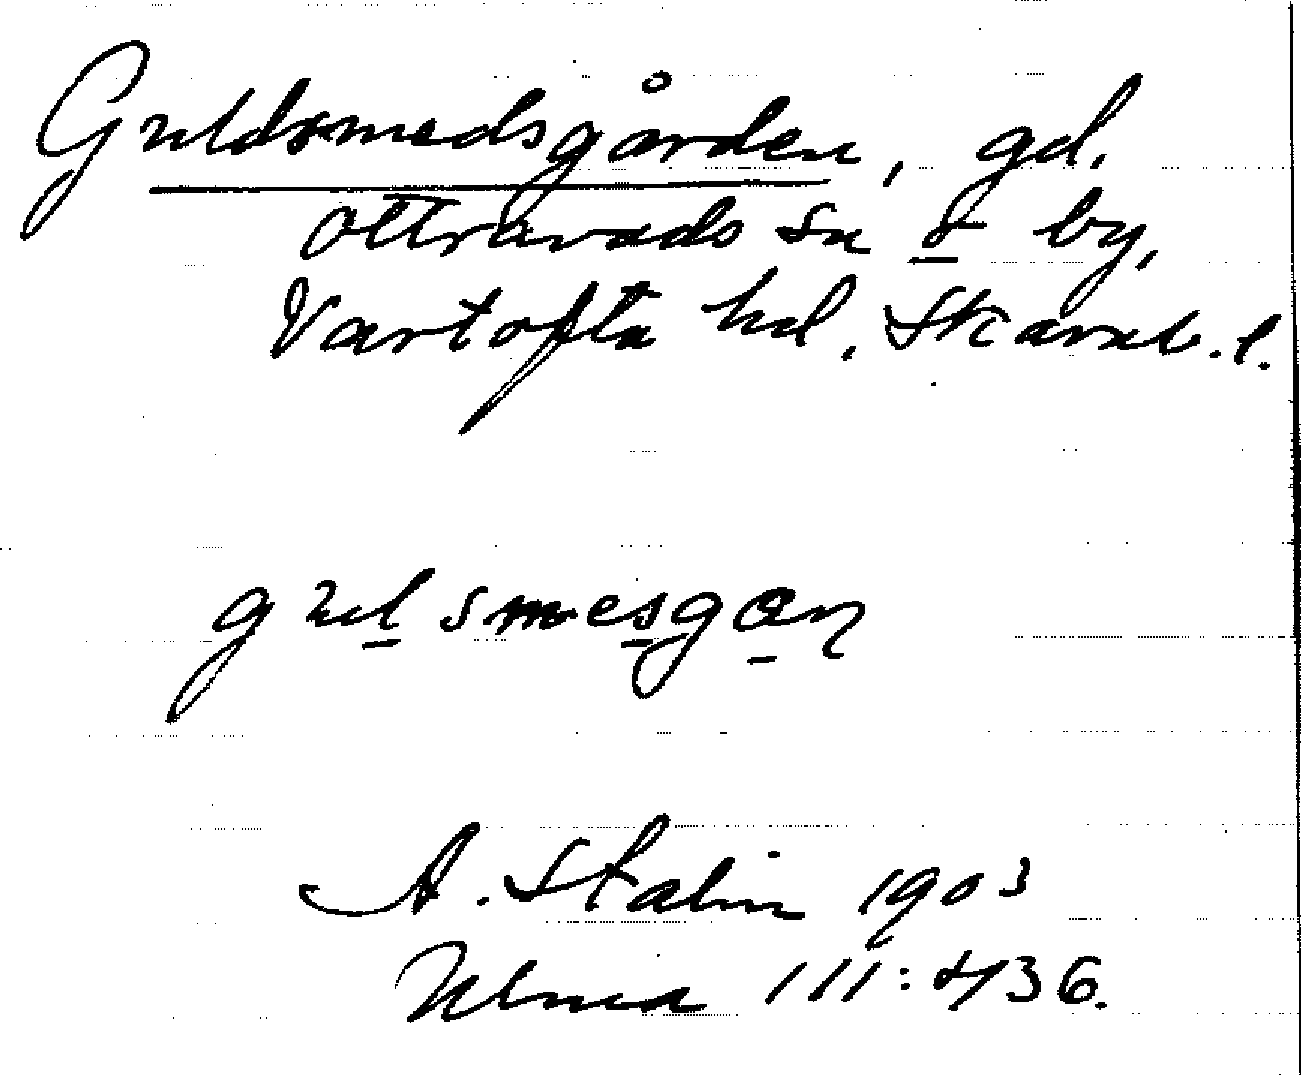 Guldsmedsgården, gd,
Ottravads sn o by,
Vartofta hd, Skarab. l.
gul smesgan
A. Stalin 1903
Ulma 111:436.